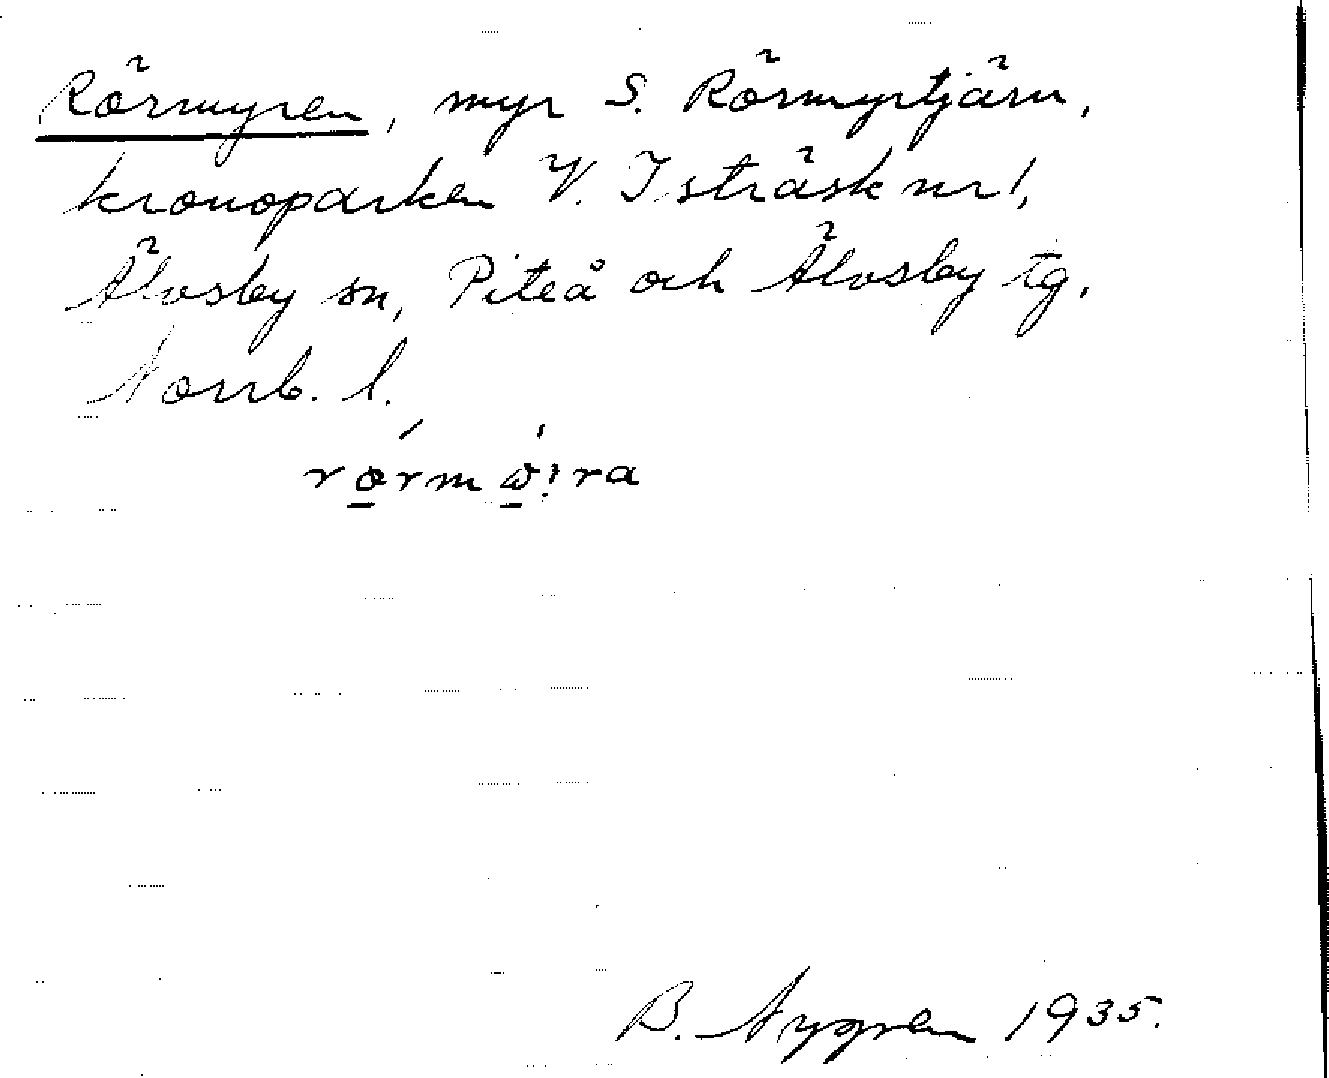 Rörmyren, myr S. Rörmyrtjärn,
kronoparken V. Isträsk nr 1,
Älvsby sn, Piteå och Älvsby tg,
Norrb. l.
B. Nygren 1935.